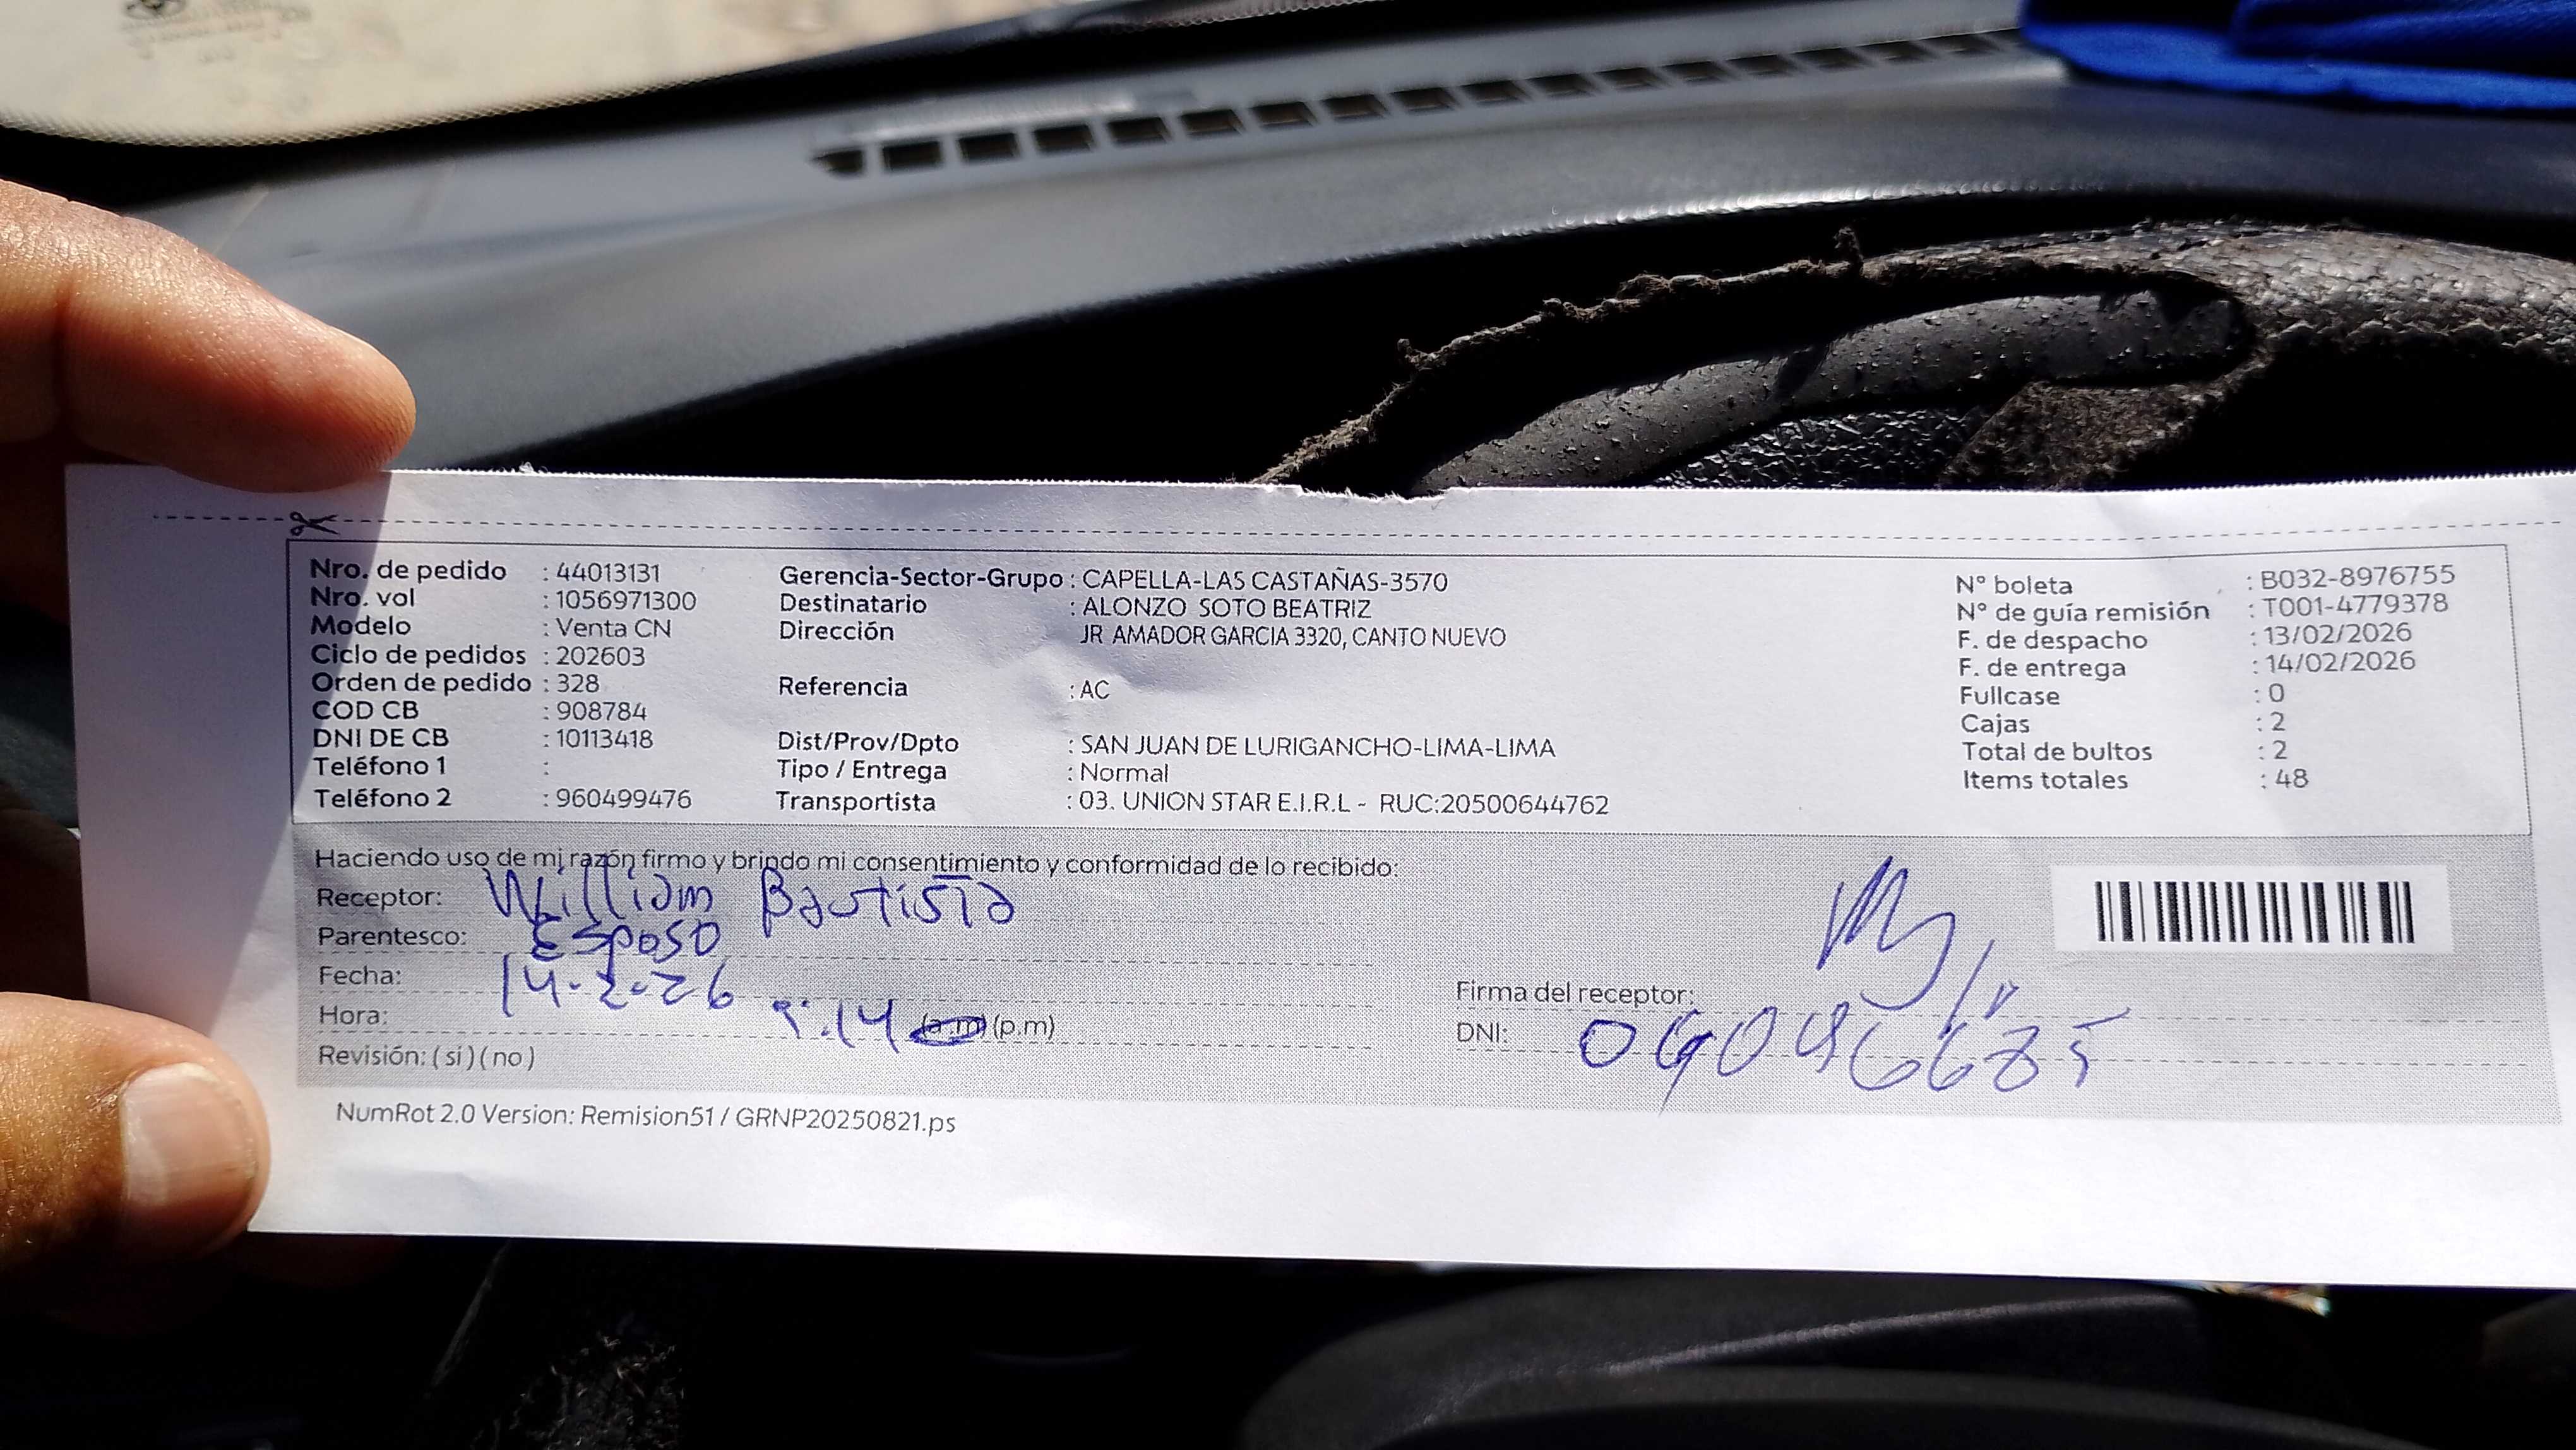 Nro. de pedido : 44013131
Nro. vol : 1056971300
Modelo : Venta CN
Ciclo de pedidos : 202603
Orden de pedido : 328
COD CB : 908784
DNI DE CB : 10113418
Teléfono 1 :
Teléfono 2 : 960499476
Gerencia-Sector-Grupo : CAPELLA-LAS CASTAÑAS-3570
Destinatario : ALONZO SOTO BEATRIZ
Dirección JR AMADOR GARCIA 3320, CANTO NUEVO
Referencia : AC
Dist/Prov/Dpto : SAN JUAN DE LURIGANCHO-LIMA-LIMA
Tipo / Entrega : Normal
Transportista : 03. UNION STAR E.I.R.L - RUC:20500644762
N° boleta : B032-8976755
N° de guía remisión : T001-4779378
F. de despacho : 13/02/2026
F. de entrega : 14/02/2026
Fullcase : 0
Cajas : 2
Total de bultos : 2
Items totales : 48
Haciendo uso de mi razón firmo y brindo mi consentimiento y conformidad de lo recibido:
Receptor: William Bautista
Parentesco: Esposo
Fecha: 14-2-26
Hora: 9:14 (a.m) (p.m)
Revisión: ( si ) ( no )
Firma del receptor:
DNI:
NumRot 2.0 Version: Remision51 / GRNP20250821.ps